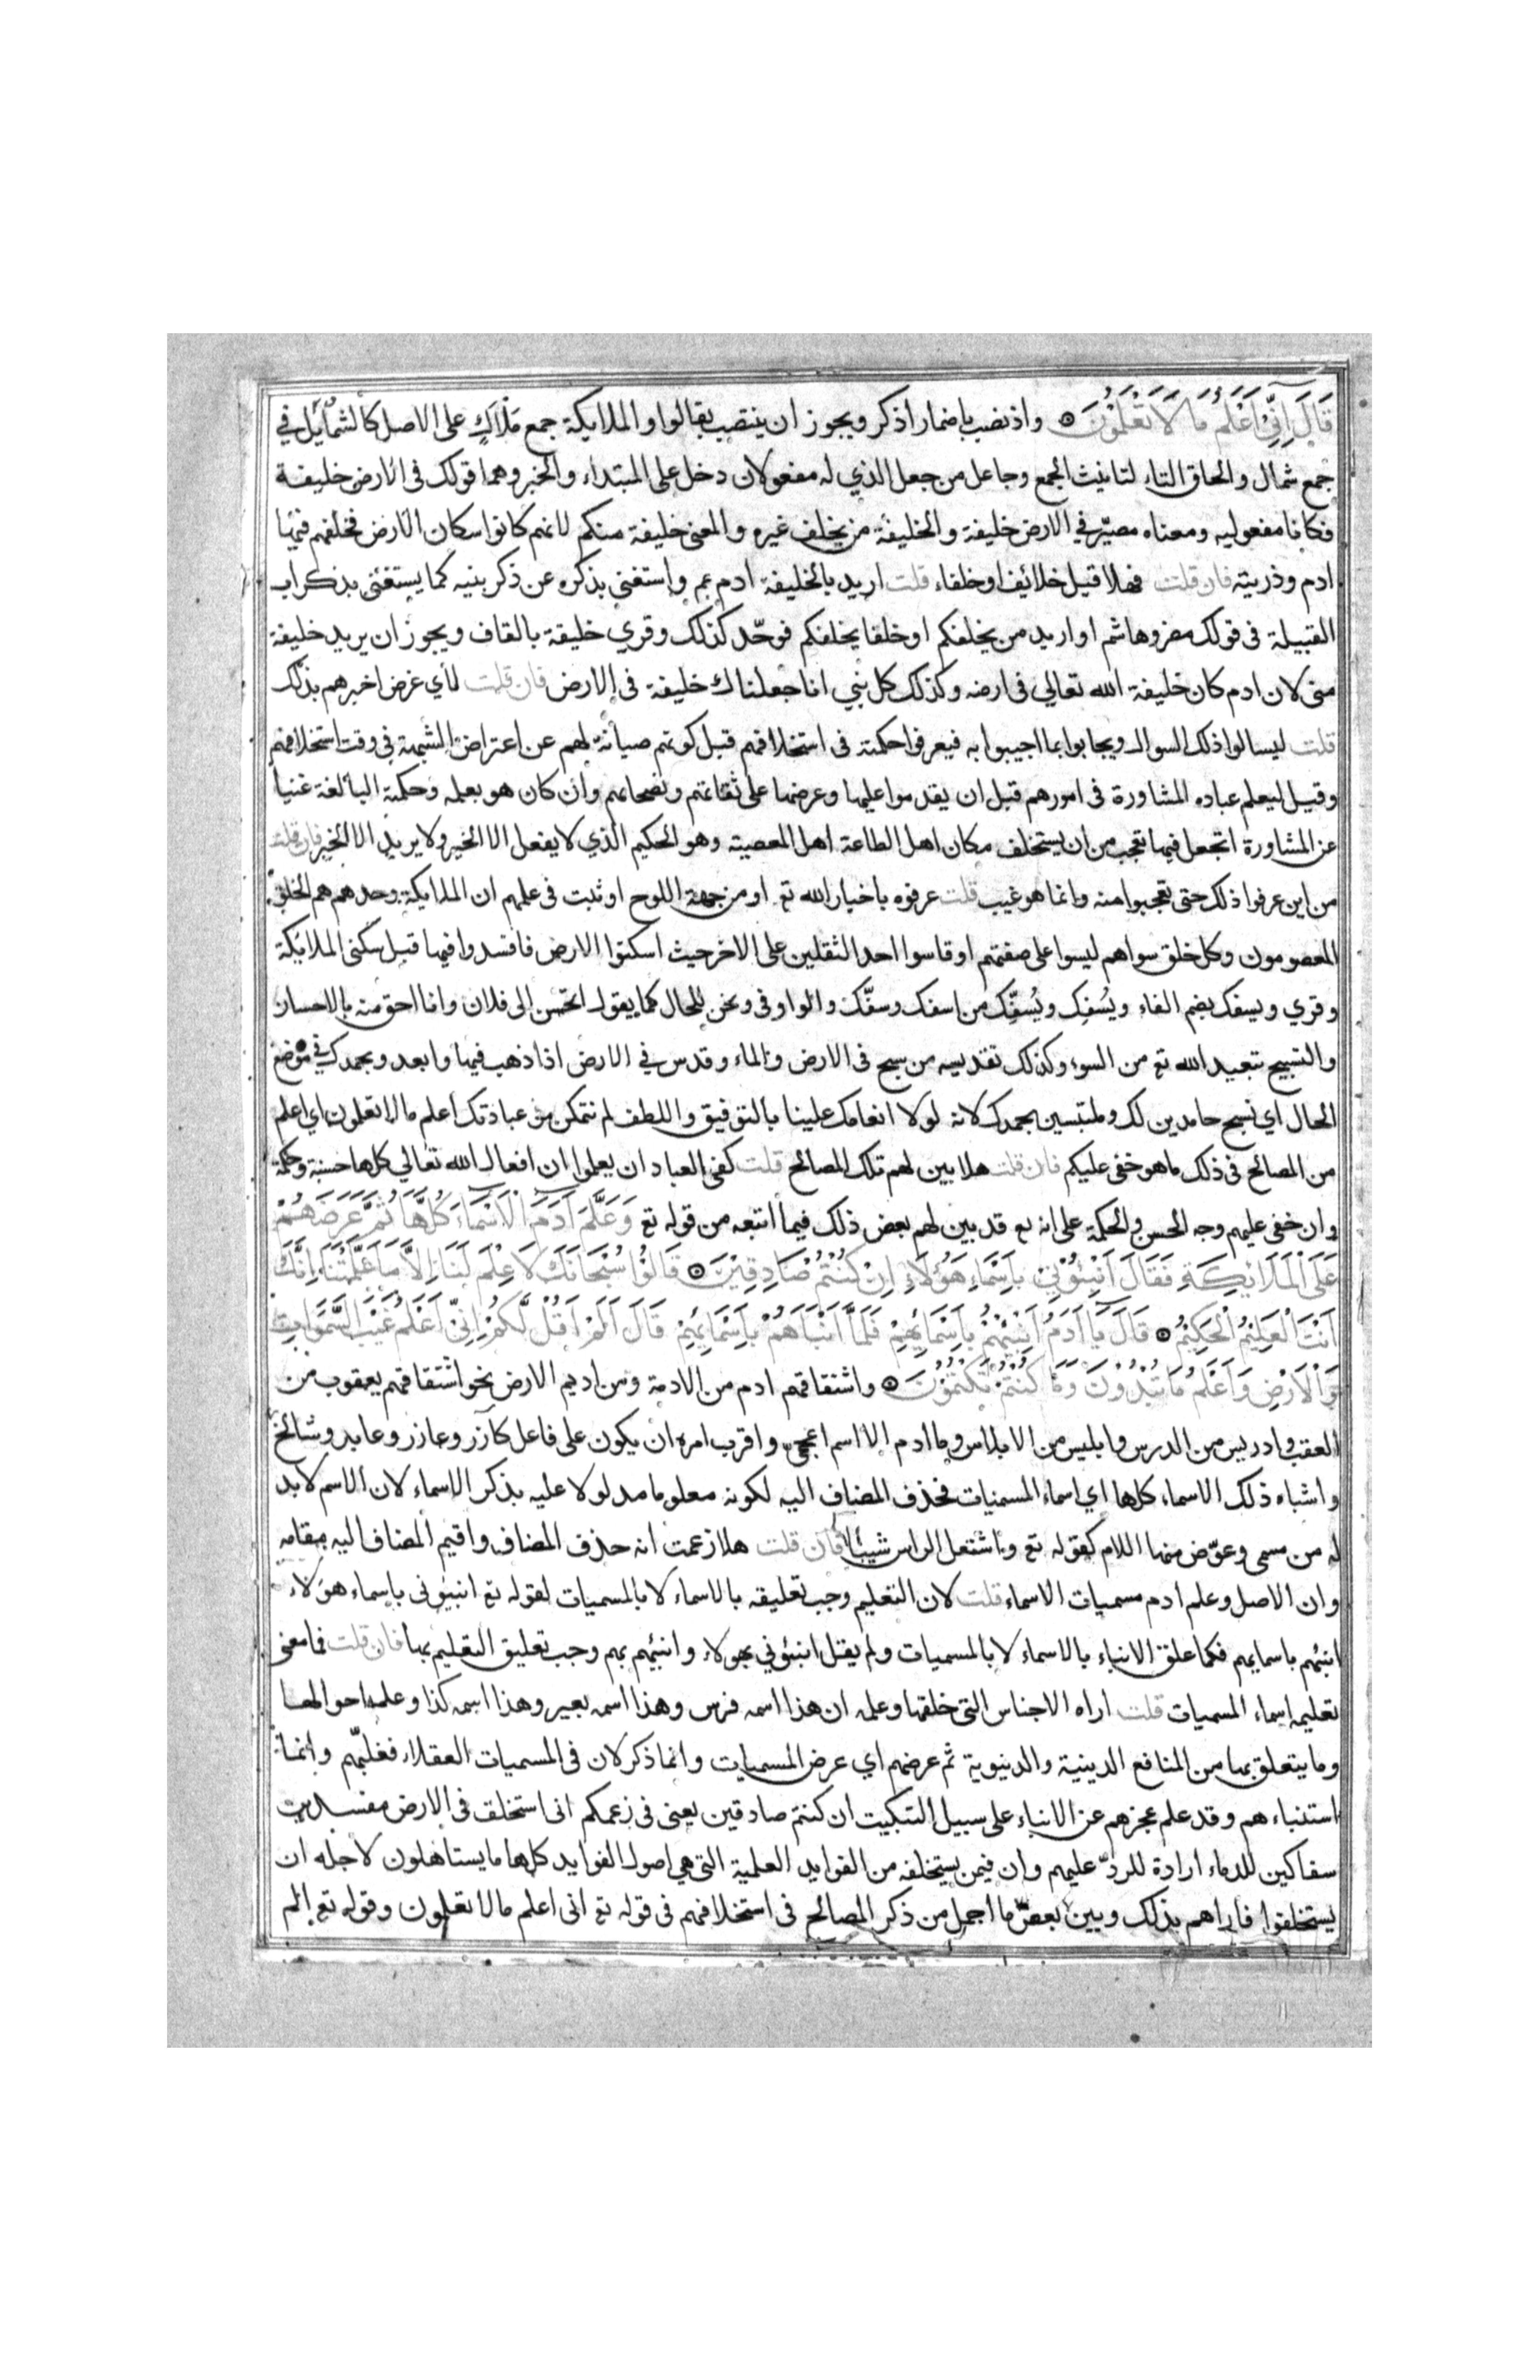 قَالَ اِنِّي اَعْلَمُ مَا لَا تَعْلَمُونَ ۞ واذ نصب باضمار اذكر ويجوز ان ينتصب بقالوا والملايكة جمع مَلْاَك على الاصل كالشمايل في
جمع شمال والحاق التاء لتانيث الجمع وجاعل من جعل الذي له مفعولان دخل على المبتداء والخبر وهما قولك فى الارض خليفة
فكانا مفعوليه ومعناه مصيّر في الارض خليفة والخليفة من يخلف غيره والمعنى خليفة منكم لانهم كانوا سكان الارض فخلفهم فيها
ادم وذريته فان قلت فهلا قيل خلائف او خلفاء قلت اريد بالخليفة ادم عم واستغنى بذكره عن ذكر بنيه كما يستغنى بذكر اب
القبيلة فى قولك مضر وهاشم او اريد من يخلفكم او خلقا يخلفكم فوحّد كذلك وقري خليقة بالقاف ويجوز ان يريد خليفة
منى لان ادم كان خليفة الله تعالي فى ارضه وكذلك كل نبي انا جعلناك خليفة فى الارض فان قلت لأي غرض اخبرهم بذلك
قلت ليسالوا ذلك السوال ويجابوا بما اجيبوا به فيعرفوا حكمته فى استخلافهم قبل كونهم صيانة لهم عن اعتراض الشبهة في وقت استخلافهم
وقيل ليعلم عباده المشاورة فى امورهم قبل ان يقدموا عليها وعرضها على ثقاتهم ونصحائهم وان كان هو بعلمه وحكمته البالغة غنيا
عن المشاورة اتجعل فيها تعجب من ان يستخلف مكان اهل الطاعة اهل المعصية وهو الحكيم الذي لا يفعل الا الخير ولا يريد الا الخير فان قلت
من اين عرفوا ذلك حتى تعجبوا منه وانما هو غيب قلت عرفوه باخبار الله تع او من جهة اللوح او ثبت فى علمهم ان الملايكة وحدهم هم الخلق
المعصومون وكل خلق سواهم ليسوا على صفتهم او قاسوا احد الثقلين على الاخر حيث اسكنوا الارض فافسدوا فيها قبل سكنى الملائكة
وقري ويسفك بضم الفاء ويُسْفِك ويُسَفِّك من اسفك وسفّك والواو فى ونحن للحال كما يقول اتحسن الى فلان وانا احق منه بالاحسان
والتسبيح تبعيد الله تع من السوء وكذلك تقديسه من سبح فى الارض والماء وقدس في الارض اذا ذهب فيها وابعد وبحمدك في موضع
الحال اي نسبح حامدين لك وملتبسين بحمدك لانه لولا انعامك علينا بالتوفيق واللطف لم نتمكن من عبادتك اعلم مالا تعلمون اي اعلم
من المصالح فى ذلك ما هو خفى عليكم فان قلت هلا بين لهم تلك المصالح قلت كفى العباد ان يعلموا ان افعال الله تعالي كلها حسنة وحكمة
وان خفى عليهم وجه الحسن والحكمة على انه قد بين لهم بعض ذلك فيما اتبعه من قوله تع وَعَلَّمَ اَدَمَ الْاَسْمَاءَ كُلَّهَا ثُمَّ عَرَضَهُمْ
عَلَى الْمَلَائِكَةِ فَقَالَ اَنْبِئُونِي بِاَسْمَاءِ هَؤُلَاءِ اِنْ كُنْتُمْ صَادِقِيْنَ ۞ قَالُوا سُبْحَانَكَ لَا عِلْمَ لَنَا اِلَّا مَا عَلَّمْتَنَا اِنَّكَ
اَنْتَ الْعَلِيْمُ الْحَكِيْمُ ۞ قَالَ يَا اَدَمُ اَنْبِئْهُمْ بِاَسْمَائِهِمْ فَلَمَّا اَنْبَاَهُمْ بِاَسْمَايِهِمْ قَالَ اَلَمْ اَقُلْ لَكُمْ اِنِّي اَعْلَمُ غَيْبَ السَّمَوَاتِ
وَالْاَرْضِ وَاَعْلَمُ مَا تُبْدُوْنَ وَمَا كُنْتُمْ تَكْتُمُوْنَ ۞ واشتقاقهم ادم من الادمة ومن اديم الارض نحو اشتقاقهم يعقوب من
العقب وادريس من الدرس وابليس من الابلاس وما ادم الا اسم اعجمي واقرب امره ان يكون على فاعل كآزر وعازر وعابر وشالخ
واشباه ذلك الاسماء كلها اي اسماء المسميات فحذف المضاف اليه لكونه معلوما مدلولا عليه بذكر الاسماء لان الاسم لابد
له من مسمى وعوّض منها اللام كقوله تع واشتعل الراس شيبا فان قلت هلا زعمت انه حذف المضاف واقيم المضاف اليه مقامه
وان الاصل وعلم ادم مسميات الاسماء قلت لان التعليم وجب تعليقه بالاسماء لا بالمسميات لقوله تع انبيوني باسماء هولاء
انبئهم باسمايهم فكما علق الانباء بالاسماء لا بالمسميات ولم يقل انبئوني بهولاء وانبئهم بهم وجب تعليق التعليم بها فان قلت فما معنى
تعليمه اسماء المسميات قلت اراه الاجناس التى خلقها وعلمه ان هذا اسمه فرس وهذا اسمه بعير وهذا اسمه كذا وعلمه احوالها
وما يتعلق بها من المنافع الدينية والدنيوية ثم عرضهم اي عرض المسميات وانما ذكر لان فى المسميات العقلاء فغلبهم وانما
استنباءهم وقد علم عجزهم عن الانباء على سبيل التبكيت ان كنتم صادقين يعنى فى زعمكم انى استخلف فى الارض مفسدين
سفاكين للدماء ارادة للردّ عليهم وان فيمن يستخلفه من الفوايد العلمية التى هي اصول الفوايد كلها ما يستاهلون لاجله ان
يستخلفوا فاراهم بذلك وبين بعض ما اجمل من ذكر المصالح فى استخلافهم فى قوله تع انى اعلم مالا تعلمون وقوله تع الم